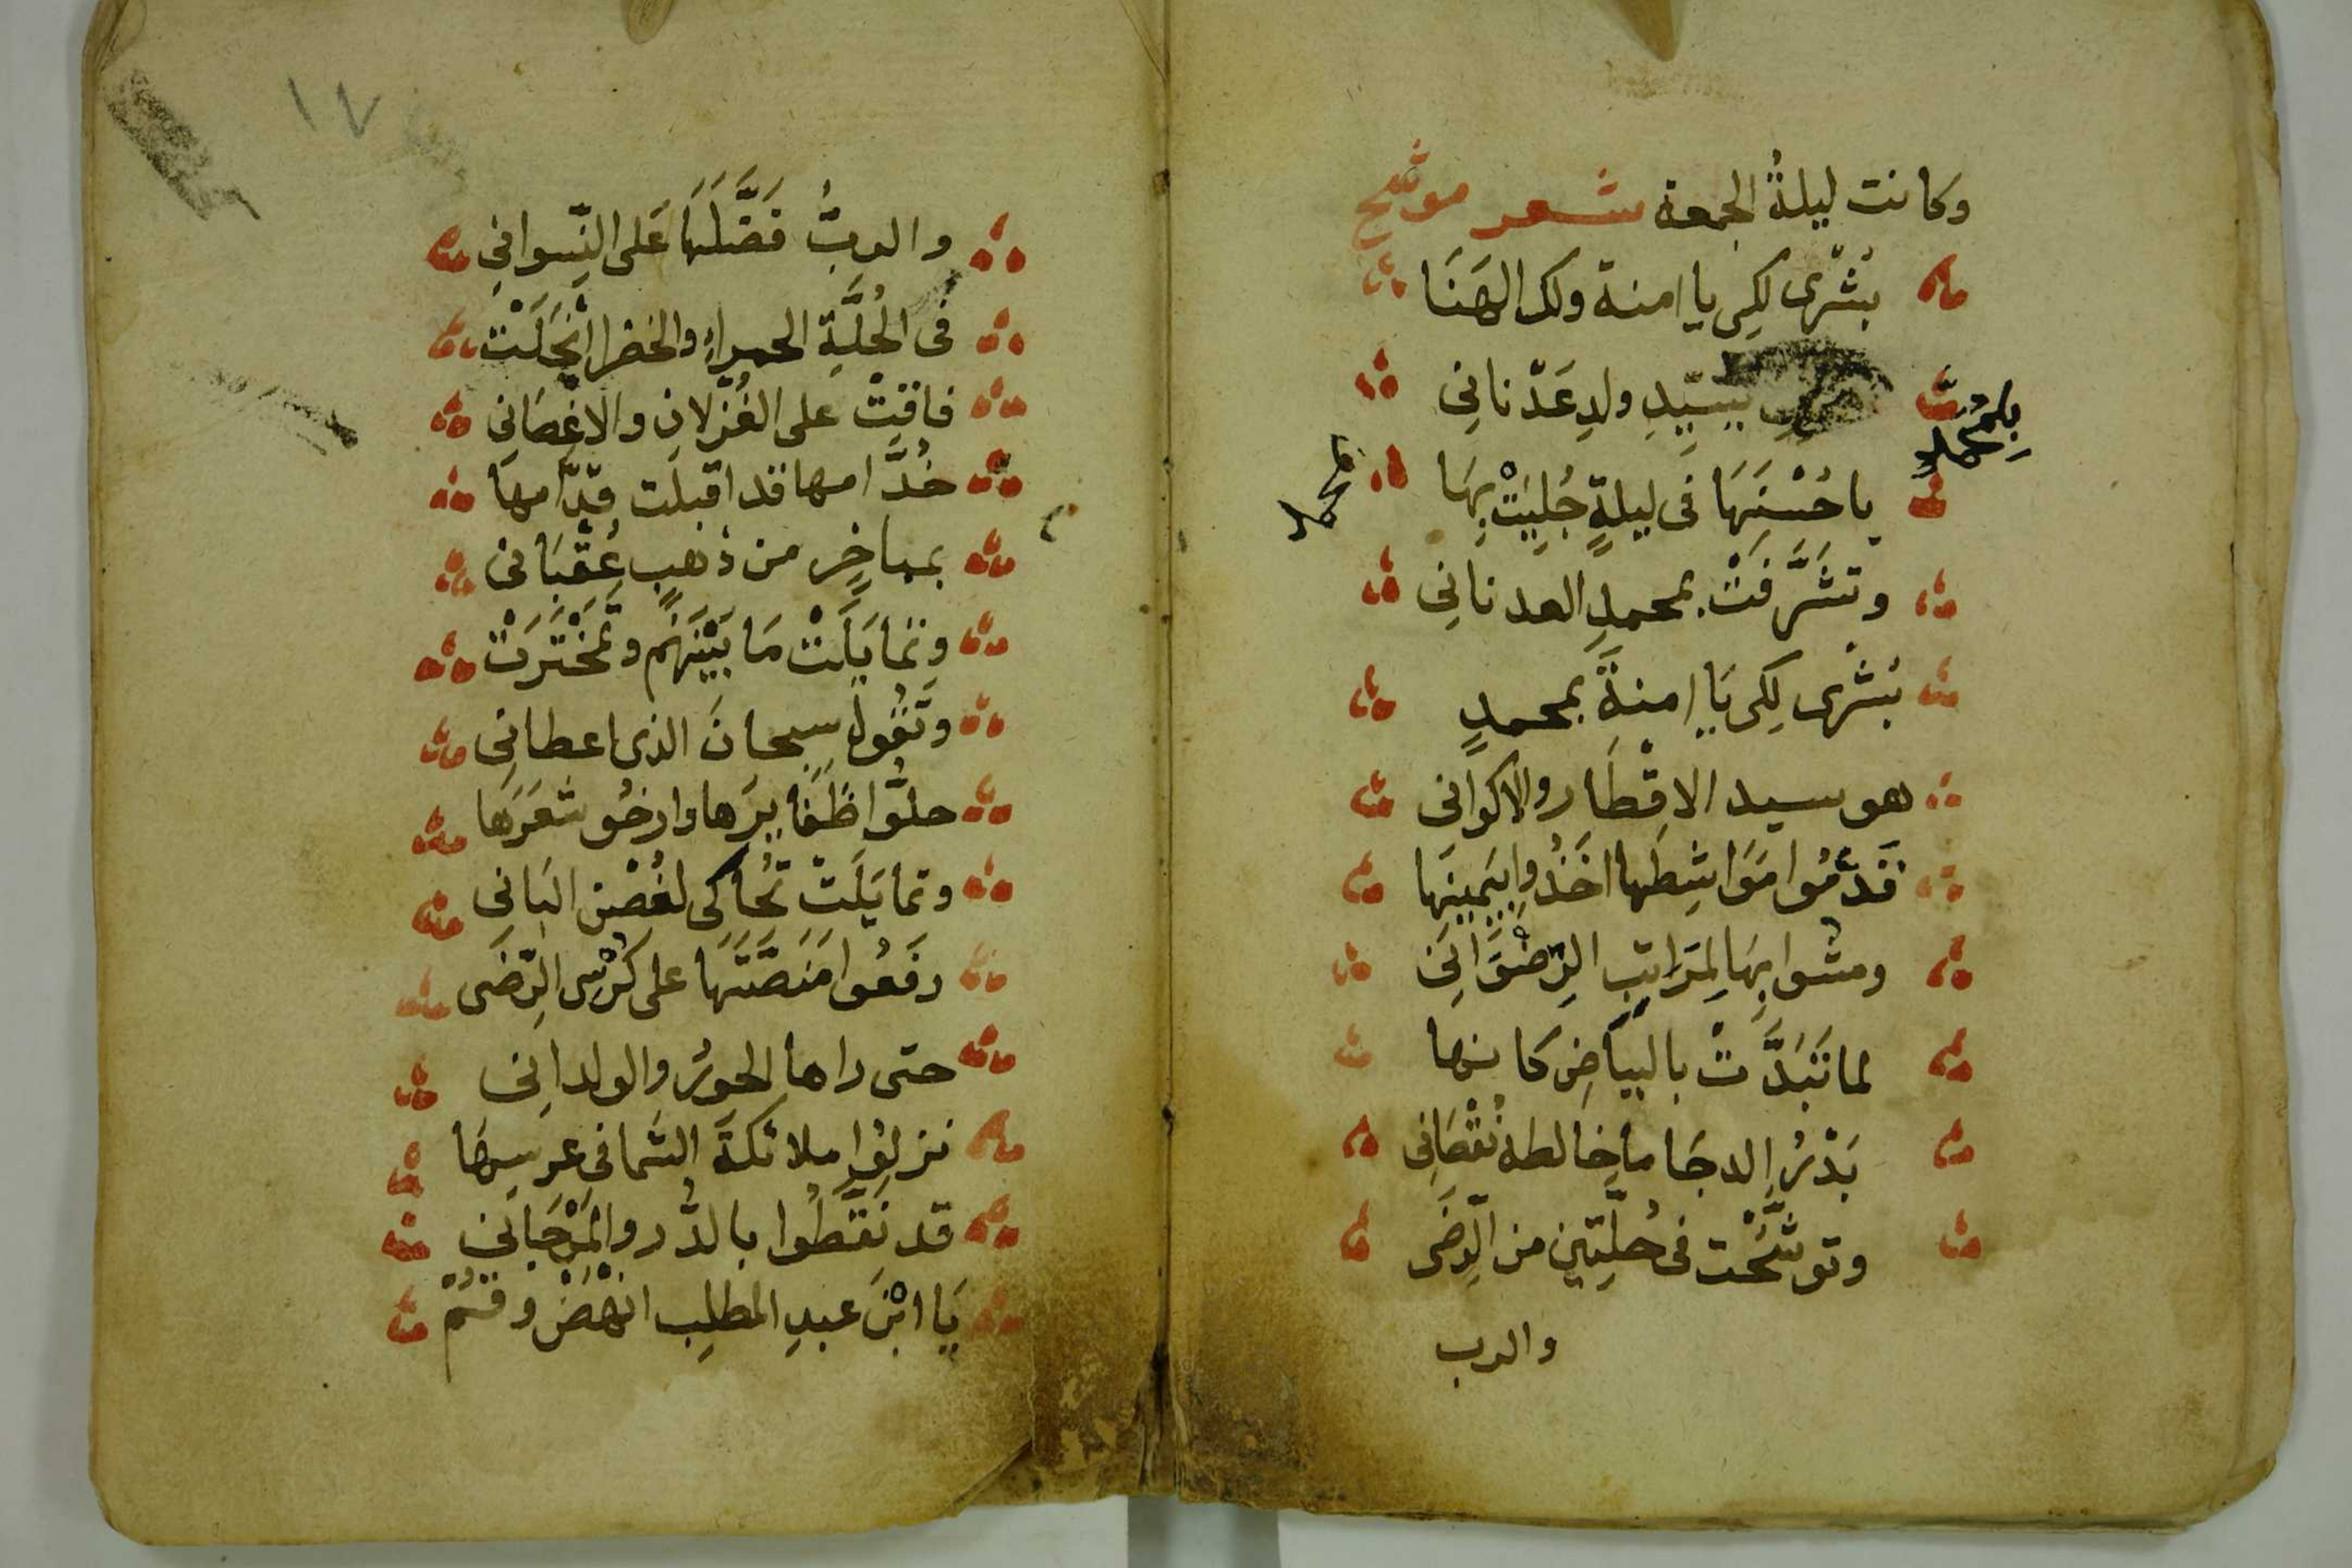 وكانت ليلةُ الجمعة شعر موشح
بُشْرى لكِي يا امنة ولك الهَنَا
بسَيِّدِ ولدِ عَدْنانِي
بمُحَمَّدٍ
يا حُسْنَهَا فى ليلةٍ جُلِيَتْ بِهَا
محمد
وتشَرَّفَتْ بمحمدِ العدنانِي
بُشْرى لكِى يَا امنةَ بمحمدٍ
هو سيد الاقْطَار والاكوانِى
قَدَّمُوا مَوَاشِطَها اخَذُوا بيَمِينِهَا
ومشوا بِهَا لمَرَاتِبِ الرِّضْوَانِى
لما تَبَدَّتْ بالبيَاضِ كانها
بَدْرُ الدجَا ما خالطه نُقْصَانِى
وتوشَّحْت فى حُلَّتَين من الرِّضَى
والرب
١٧
والربُّ فَضَّلَهَا عَلى النِّسوانِى
فى الحُلَّةِ الحمراءِ والخضرا انْجَلَتْ
فاقتْ على الغُزْلانِ والاغْصَانِى
خُدَّامها قد اقبلت قدَّامها
بمباخِرٍ من ذهبٍ عُقْبَانى
وتمايَلَتْ مَا بَيْنَهُم وتمَخْتَرَتْ
وتَقُولُ سبحانَ الذى اعطانِى
حلُّوا ظَفَايرَها وارخُو شَعَرَها
وتمايَلَتْ تُحَاكى لغُصْن البَانِى
رفَعُوا مَنَصَّتَهَا على كُرْسِى الرِّضَى
حتى راها الحورُ والولدانِى
نزلوا ملائكةَ السَّما فى عرسِهَا
قد نَقَّطُوا بالدُّر والمَرْجَانِى
يَا ابْنَ عبدِ المطلِب انْهَضْ وقُمْ